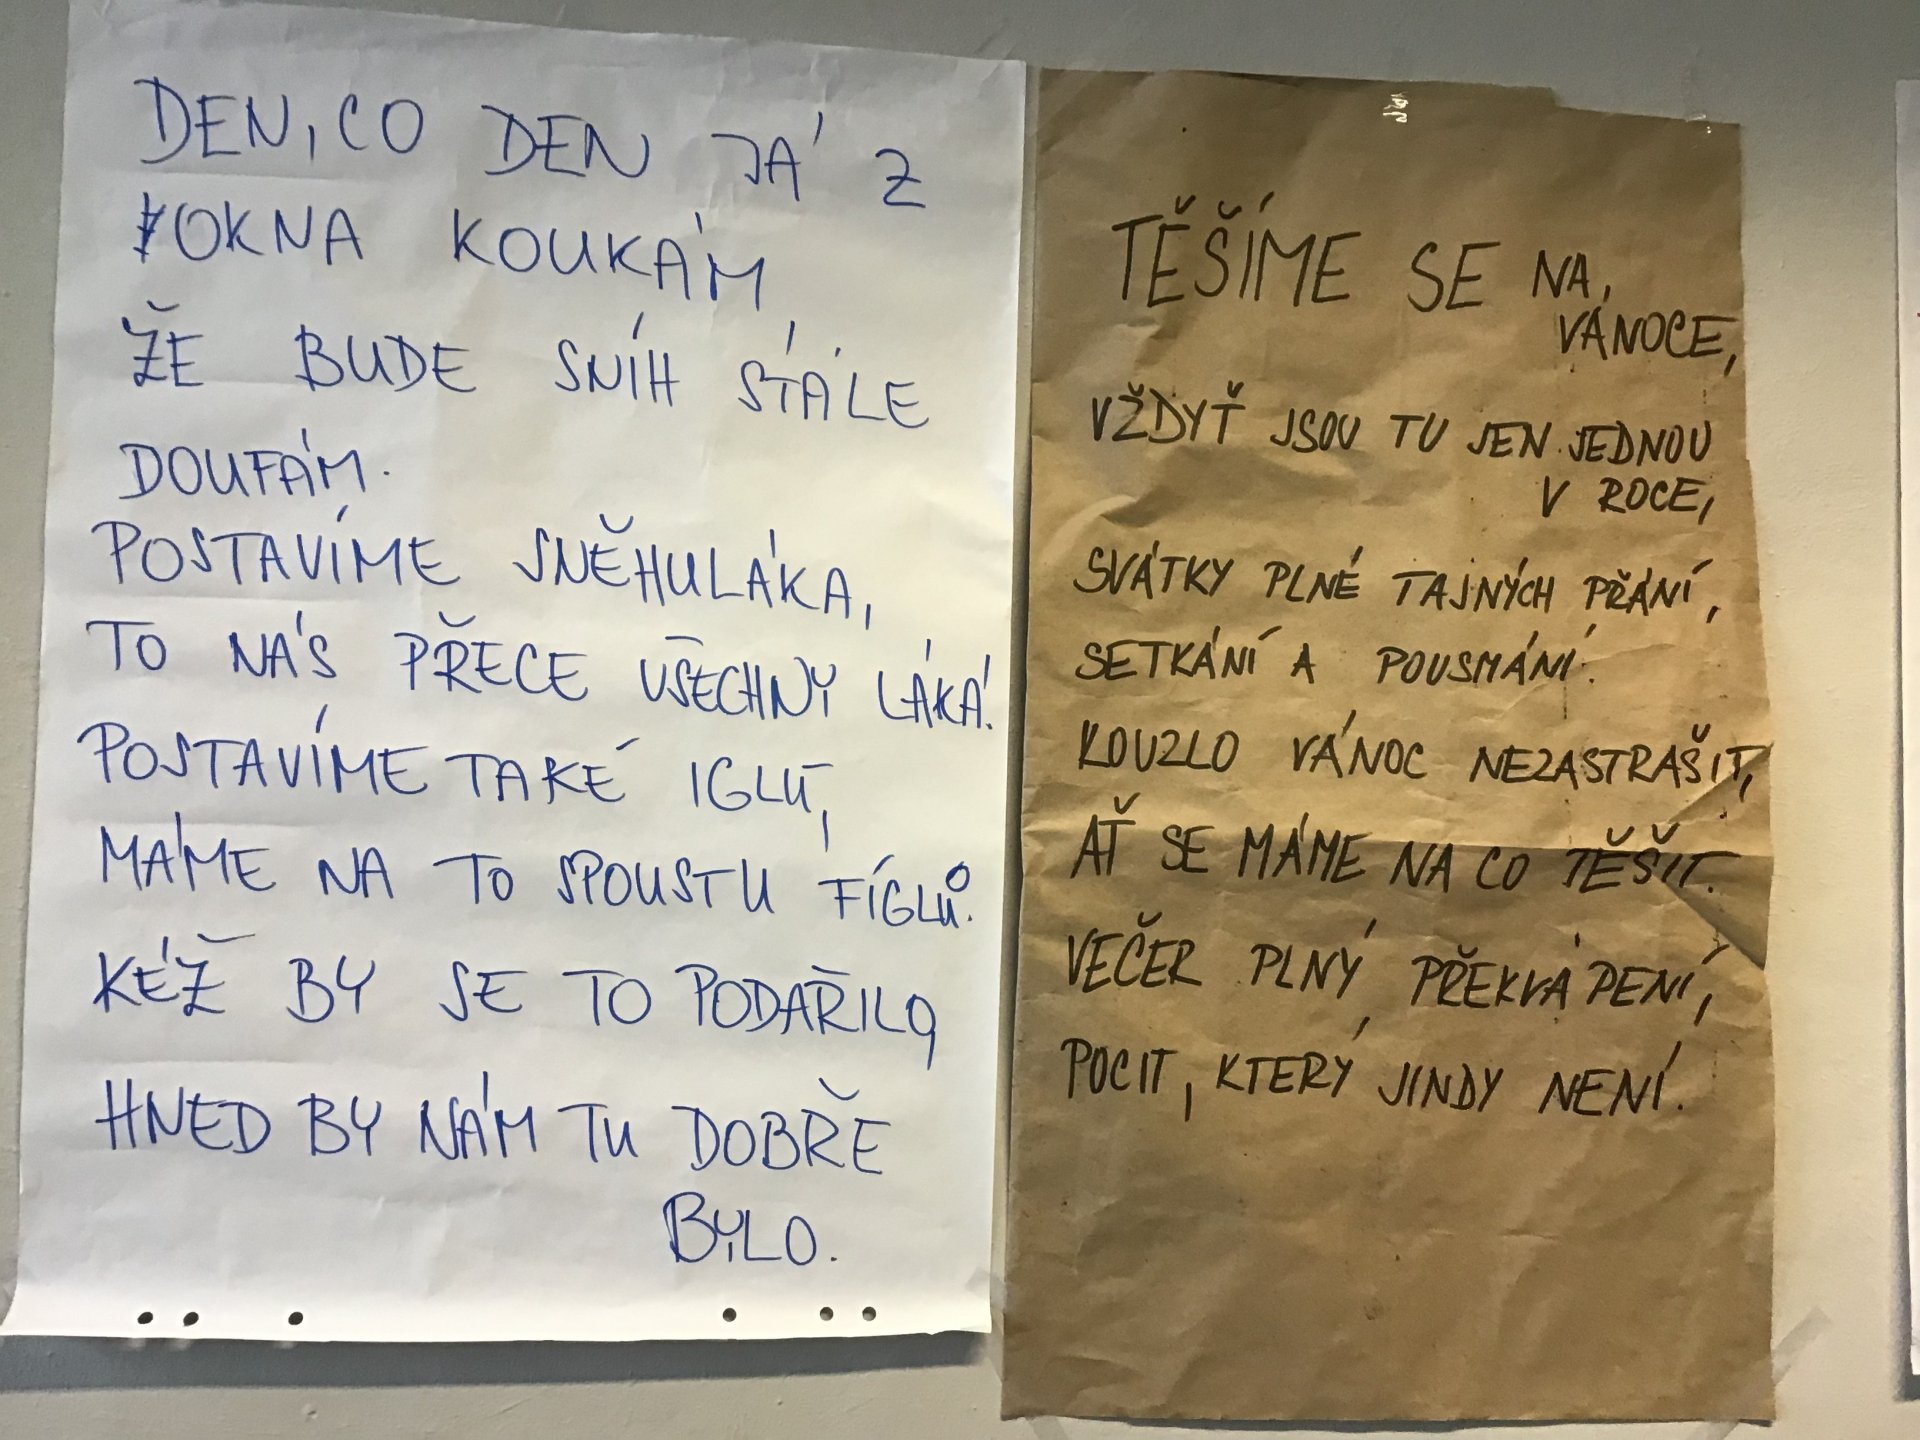 DEN, CO DEN JÁ Z
OKNA KOUKÁM,
ŽE BUDE SNÍH STÁLE
DOUFÁM.
POSTAVÍME SNĚHULÁKA,
TO NÁS PŘECE VŠECHNY LÁKÁ.
POSTAVÍME TAKÉ IGLÚ,
MÁME NA TO SPOUSTU FÍGLŮ.
KÉŽ BY SE TO PODAŘILO,
HNED BY NÁM TU DOBŘE
BYLO.
TĚŠÍME SE NA
VÁNOCE,
VŽDYŤ JSOU TU JEN JEDNOU
V ROCE,
SVÁTKY PLNÉ TAJNÝCH PŘÁNÍ,
SETKÁNÍ A POUSMÁNÍ.
KOUZLO VÁNOC NEZASTRAŠIT,
AŤ SE MÁME NA CO TĚŠIT.
VEČER PLNÝ PŘEKVÁPENÍ,
POCIT, KTERÝ JINDY NENÍ.